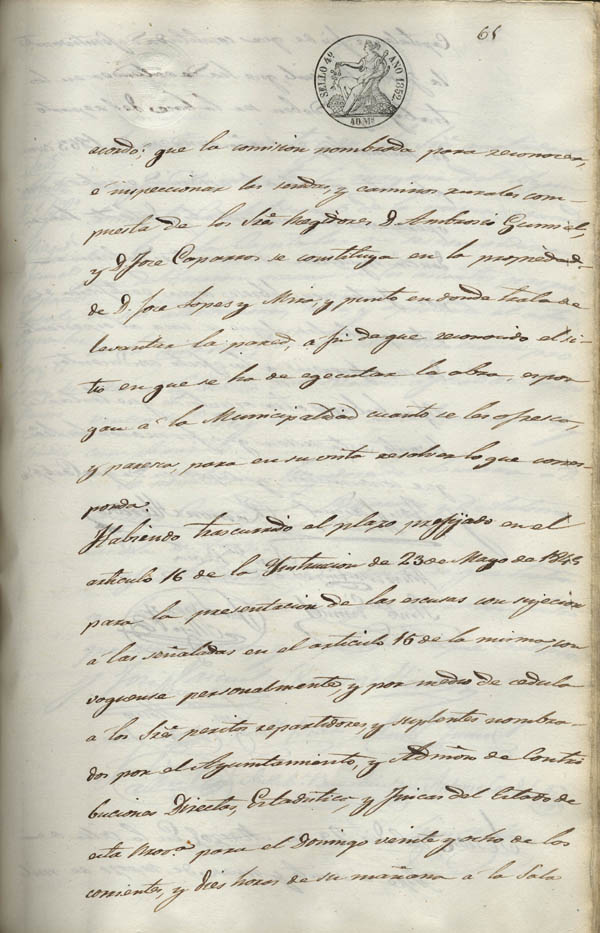 65
SELLO 4º AÑO 1852.
40 Ms
acordó: que la comision nombrada para reconocer,
é inspeccionar las sendas, y caminos rurales com-
puesta de los Sres Regidores D Ambrosio Gumiel,
y D Jose Caparros se constituya en la propiedad
de D. Jose Lopes y Mira, y punto en donde trata de
levantar la pared, a fin de que reconocido el si-
tio en que se ha de egecutar la obra, espon
gan á la Municipalidad cuanto se les ofresca,
y paresca, para en su vista resolver lo que corres-
ponda.
Habiendo trascurrido el plazo prefijado en el
articulo 16 de la Ynstruccion de 23 de Mayo de 1845
para la presentacion de las escusas con sujecion
á las señaladas en el articulo 15 de la misma, con
voquense personalmente, y por medio de cedula
a los Sres peritos repartidores, y suplentes nombra-
dos por el Ayuntamiento, y Admon de Contri
buciones Directas, Estadistica, y Fincas del Estado de
esta Prova para el Domingo veinte y ocho de los
corrientes, y dies horas de su mañana á la Sala